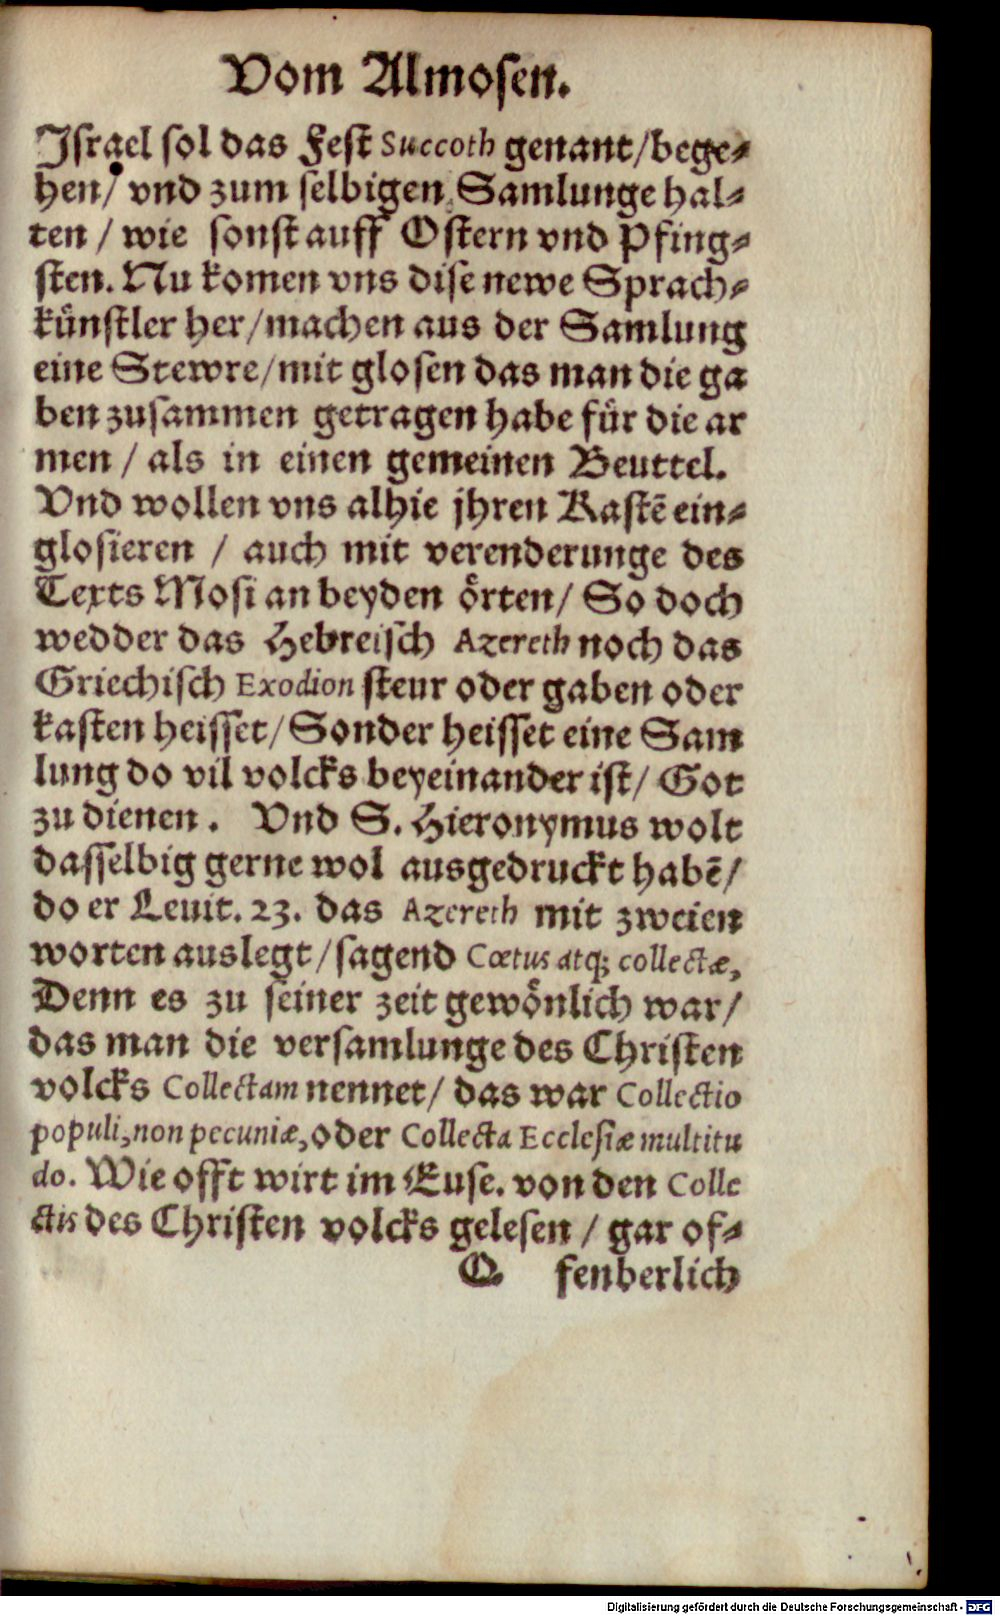 Vom Almosen.
Jsrael sol das Fest Succoth genant/bege⸗
hen/ vnd zum selbigen Samlunge hal⸗
ten / wie sonst auff Ostern vnd Pfing⸗
sten. Nu komen vns dise newe Sprach⸗
künstler her/machen aus der Samlung
eine Stewre/mit glosen das man die ga
ben zusammen getragen habe für die ar
men / als in einen gemeinen Beuttel.
Vnd wollen vns alhie jhren Kastē ein⸗
glosieren / auch mit verenderunge des
Texts Mosi an beyden örten/ So doch
wedder das Hebreisch Azereth noch das
Griechisch Exodion steur oder gaben oder
kasten heisset/Sonder heisset eine Sam
lung do vil volcks beyeinander ist/ Got
zu dienen. Vnd S. Hieronymus wolt
dasselbig gerne wol ausgedruckt habē/
do er Leuit. 23. das Azereth mit zweien
worten auslegt/sagend Cœtus atq; collectæ,
Denn es zu seiner zeit gewönlich war/
das man die versamlunge des Christen
volcks Collectam nennet/ das war Collectio
populi,non pecuniæ,oder Collecta Ecclesiæ multitu
do. Wie offt wirt im Euse. von den Colle
ctis des Christen volcks gelesen / gar of⸗
Q. fenberlich
Digitalisierung gefördert durch die Deutsche Forschungsgemeinschaft - DFG